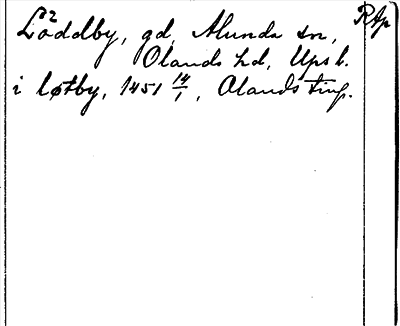 Löddby, gd, Alunda sn, RAp
Olands hd, Upsl.
i løtby, 1451 14/1, Olands ting.